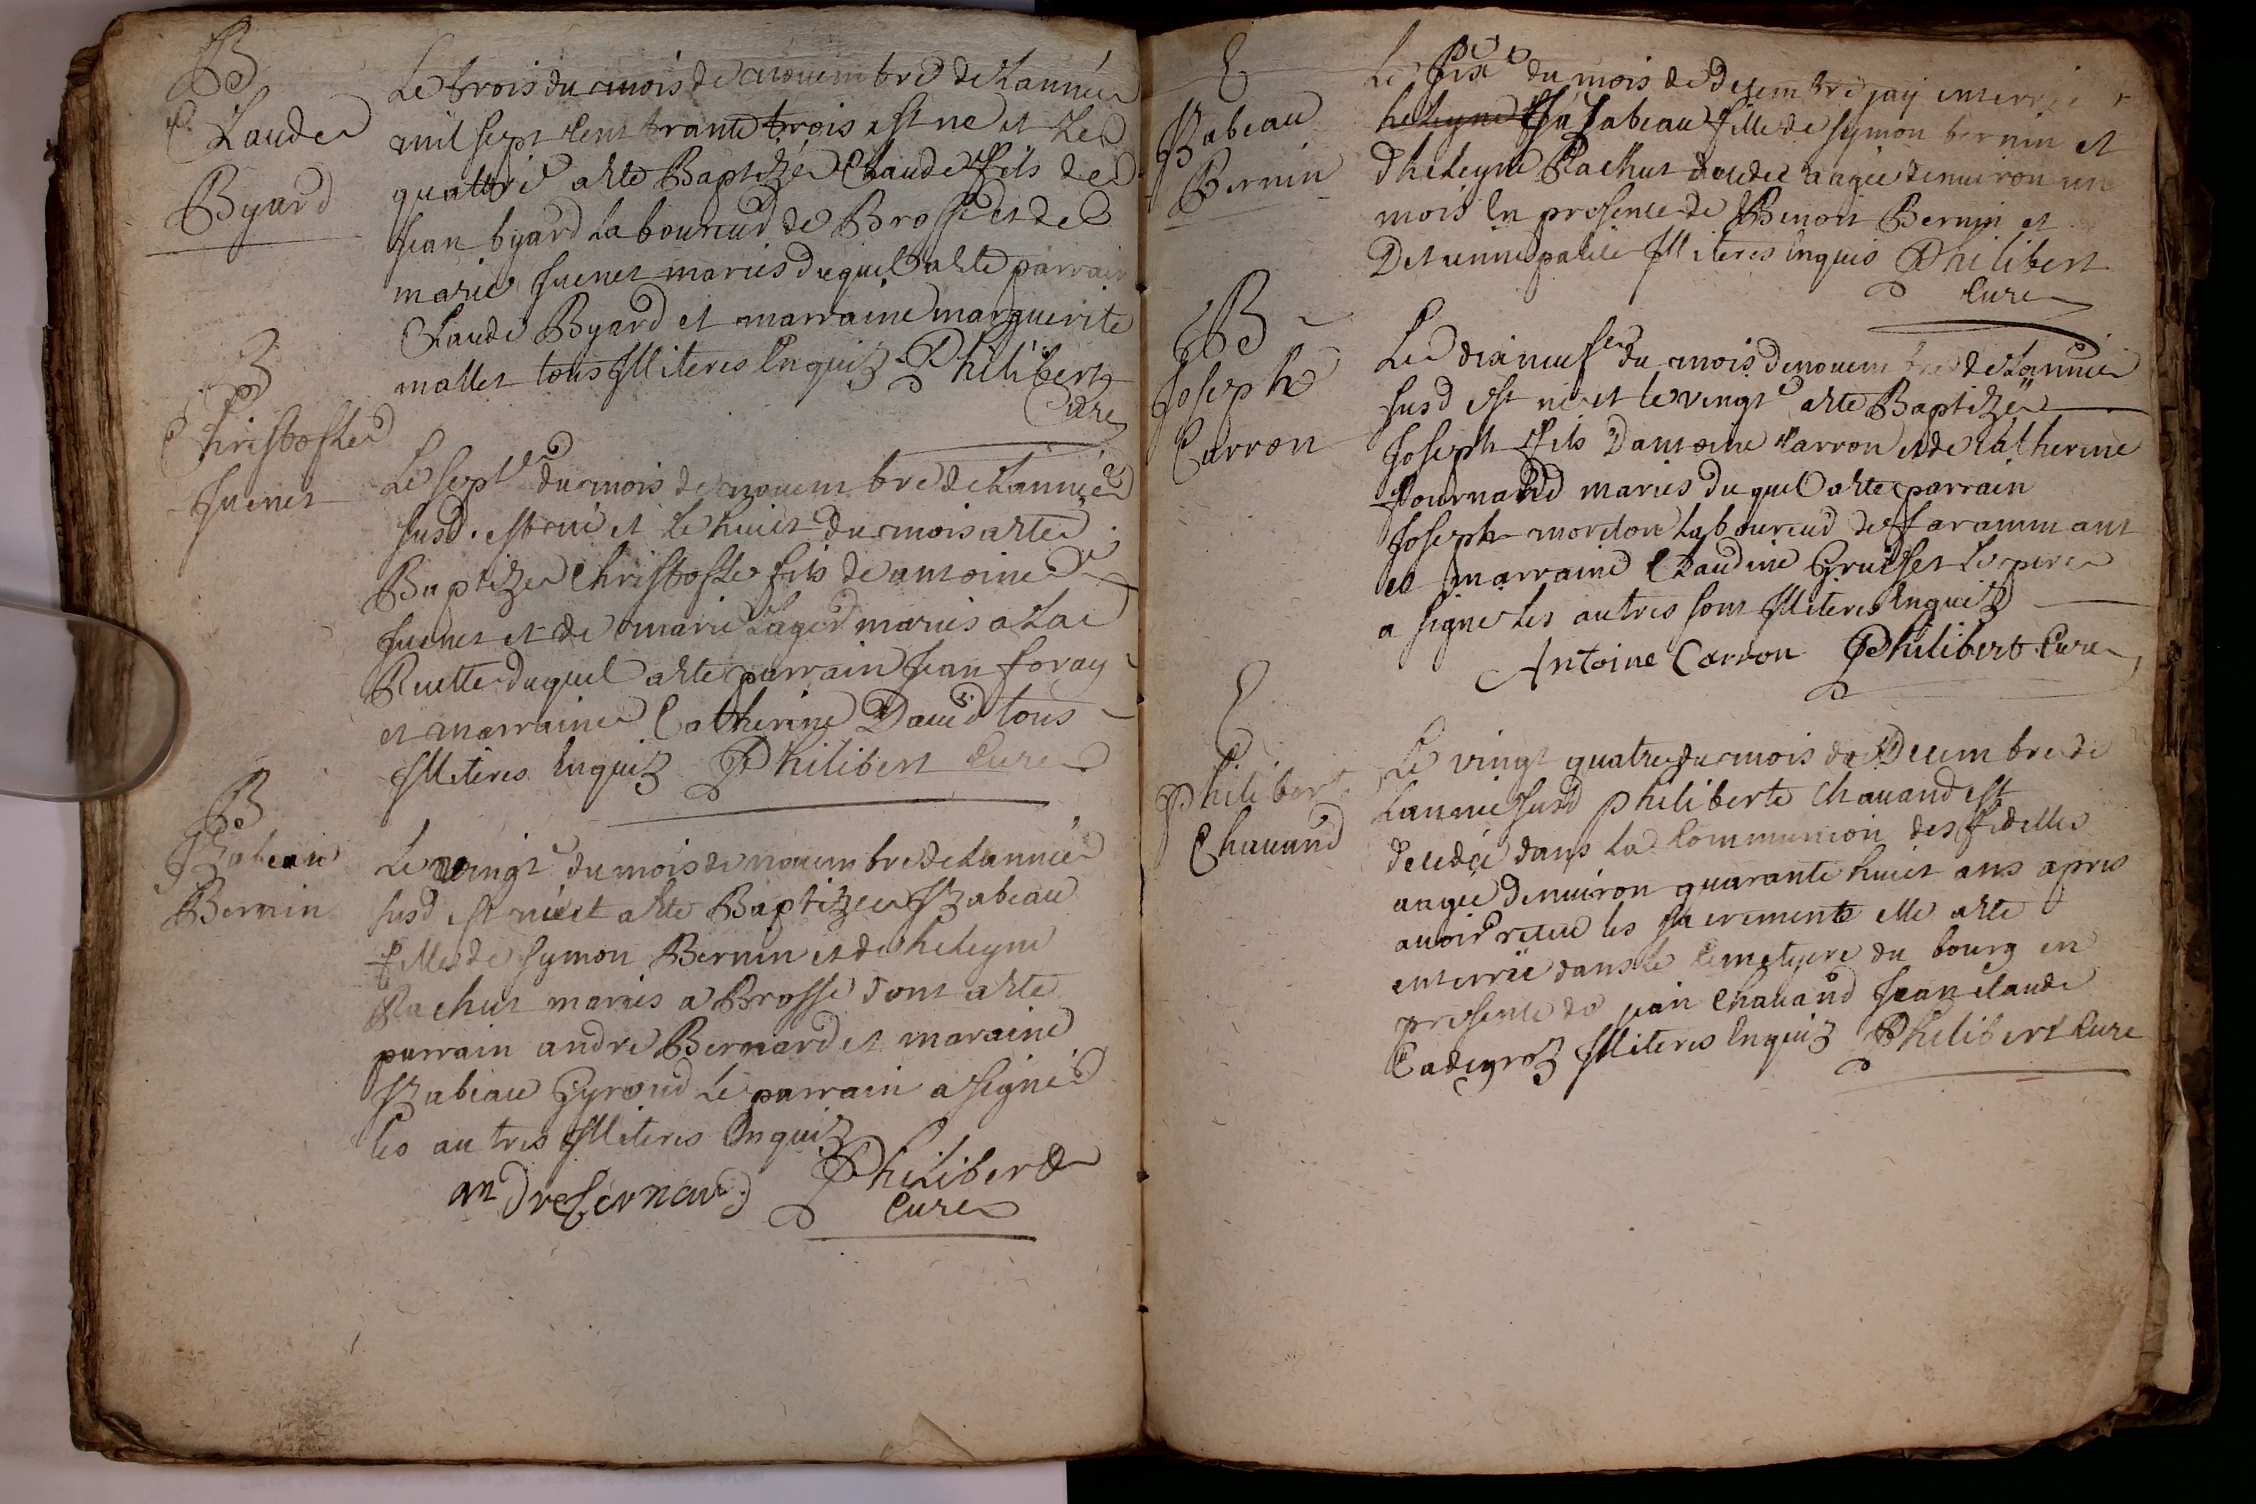 B
Claude
Byard
Le trois du mois de nouembre de Lannée
mil sept cent trante trois est ne et Le
quattre aste Baptizé Claude fils de
Jean byard Laboureur de Brosse et de
marie Juenet maries duquel aste parrain
Claude Byard et marraine marguerite
mallet tous Illiteres Enquiz Philibert
Cure
B
Christofle
Juenet
Le sept du mois de nouembre de Lannée
susd. est né et le huict du mois aste
Baptize Christofle fils de antoine
Juenet et de marie Lager maries a La
Ruette duquel aste parrain Jean foray
et marraine Catherine Dauid tous
Illiteres Enquiz Philibert Cure
B
Izabeau
Bernin
Le vingt du mois de nouembre de Lannée
susd est née et aste Baptizee Izabeau
fille de Symon Bernin et de heleyne
Rachut maries a Brosse dont aste
parrain andre Bernard et maraine
Izabeau Gyroud Le parrain a signé
les autres Illiteres Enquiz
andre bernard Philibert
Cure
E
Izabeau
Bernin
Le dix du mois de decembre jay enterrée
heleyne Isabeau fille de symon bernin et
dheleyne Rachut decedee aagée denuiron un
mois En presence de Benoit Bernin et
Illiteres Enquis Philibert
Cure
B
Joseph
Carron
Le dixneuf du mois de nouembre de Lannée
susd est né et le vingt aste Baptizé
Joseph fils Dantoine Carron et de Catherine
maries duquel aste parrain
Joseph morelon Laboureur de faramant
et marraine Claudine Gruisset Le pere
a signe les autres sont Illiteres Enquiz
Antoine Carron Philibert Cure
E
Philibert
Chauand
Le vingt quatre du mois de Decembre de
Lannée susd philiberte Chauand est
decedée dans la Communion des fidelles
aagée denuiron quarante huict ans apres
auoir receu les sacrements elle aste
enterrée dans le Cemetiere du bourg en
presence de jean Chauand Jean Claude
Cadegroz Illiteres Enquiz Philibert Cure